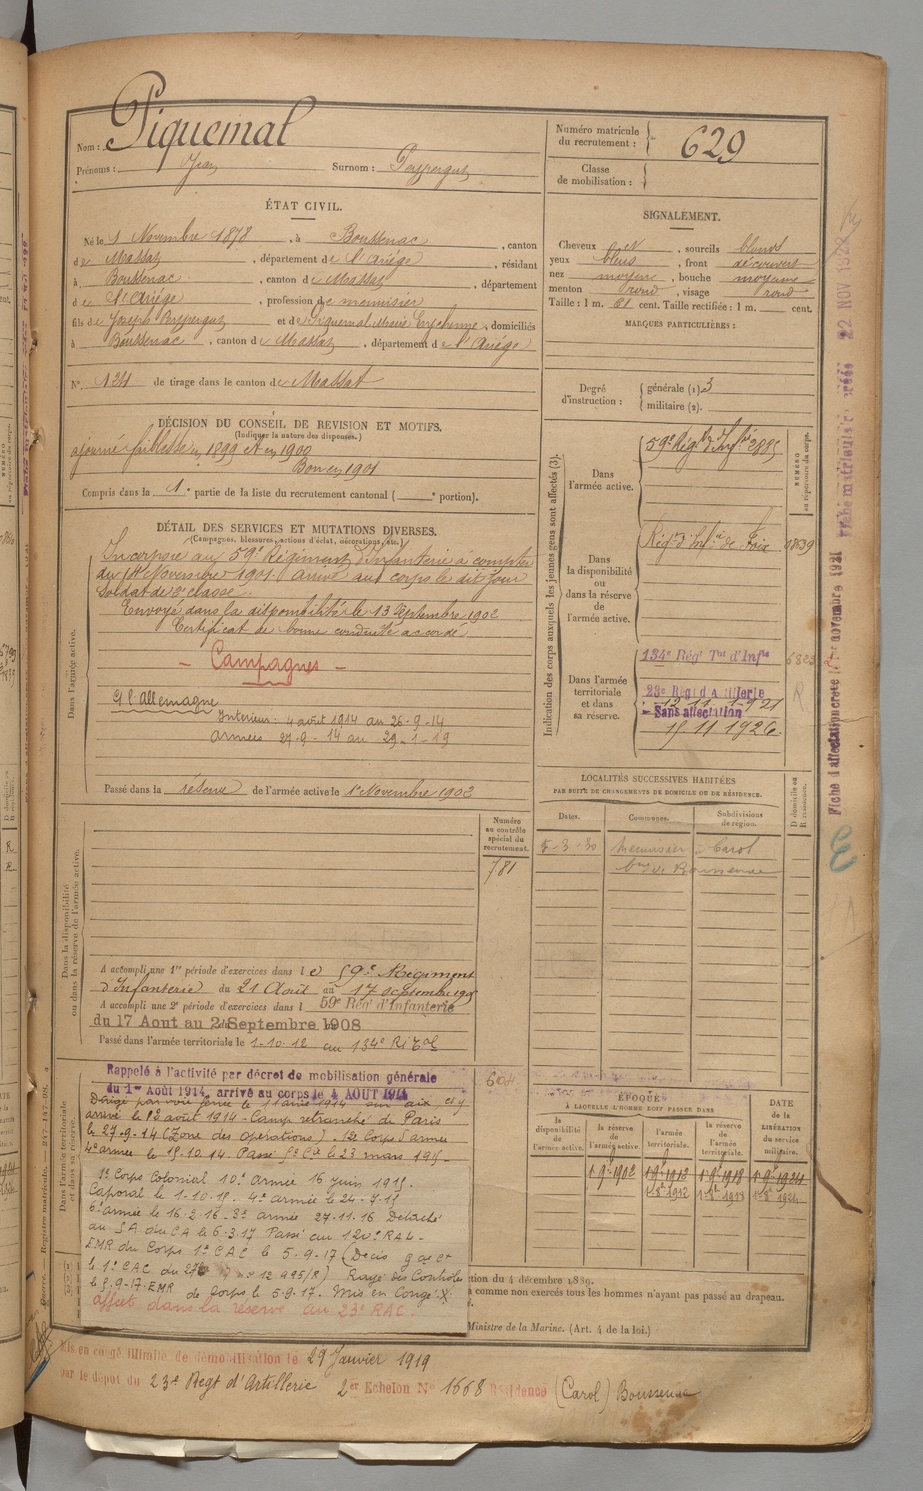 Nom : Piquemal
Prénoms : Jean Surnom :
Numéro matricule du recrutement : 629
Classe de mobilisation :
ÉTAT CIVIL.
Né le 1 Novembre 1878, à Boussenac, canton
de Massat, département de l'Ariège, résidant
à Boussenac, canton de Massat, département
de l'Ariège, profession de menuisier
fils de Joseph et de Piquemal Marie, domiciliés
à Boussenac, canton de Massat, département de l'Ariège
N° 124 de tirage dans le canton de Massat
SIGNALEMENT.
Cheveux et, sourcils blonds
yeux bleus, front découvert
nez moyen, bouche moyenne
menton rond, visage rond
Taille : 1 m. 61 cent. Taille rectifiée : 1 m. cent.
MARQUES PARTICULIÈRES :
Degré d'instruction : générale (1). 3
militaire (2).
DÉCISION DU CONSEIL DE REVISION ET MOTIFS.
(Indiquer la nature des dispenses.)
ajourné faiblesse en 1899 et en 1900
Bon en 1901
Compris dans la 1e partie de la liste du recrutement cantonal ( e portion).
DÉTAIL DES SERVICES ET MUTATIONS DIVERSES.
(Campagnes, blessures, actions d'éclat, décorations, etc.)
Dans l'armée active.
Incorporé au 59e Régiment d'infanterie à compter
du 14 Novembre 1901. Arrivé au corps le dit jour
Soldat de 2e classe.
Envoyé dans la disponibilité le 13 Septembre 1902
Certificat de bonne conduite accordé
- Campagnes -
C l'Allemagne
Intérieur : 4 août 1914 au 26-9-14
Armées 27-9-14 au 29-1-19
Passé dans la réserve de l'armée active le 1er Novembre 1902
Indication des corps auxquels les jeunes gens sont affectés (3).
NUMÉRO au répertoire du corps.
Dans l'armée active.
59e Régt d'Infie 2885
Dans la disponibilité ou dans la réserve de l'armée active.
Régt d'Infie de Foix 0839
Dans l'armée territoriale et dans sa réserve.
134e Régt Tal d'Infie
23e Régt d'Artillerie
12 11 1921
Sans affectation
15.11.1926
LOCALITÉS SUCCESSIVES HABITÉES
PAR SUITE DE CHANGEMENTS DE DOMICILE OU DE RÉSIDENCE.
Dates. Communes. Subdivisions de région. D domicile ou R résidence.
5-3-30 menuisier à Carol
Dans la disponibilité ou dans la réserve de l'armée active.
Numéro au contrôle spécial du recrutement.
781
A accompli une 1re période d'exercices dans le 59e Régiment
d'Infanterie du 21 Août au 17 septembre 1905
A accompli une 2e période d'exercices dans l 59e Régt d'Infanterie
du 17 Aout au 2 Septembre 1908
Passé dans l'armée territoriale le 1-10-12 au 134e RI Tal
Dans l'armée territoriale et dans sa réserve.
604
Rappelé à l'activité par décret de mobilisation générale
du 1er Août 1914, arrivé au corps le 4 AOUT 1914
Dirigé par voie ferrée le 11 août 1914 sur aix et y
arrivé le 12 août 1914 - Camp retranché de Paris
le 27-9-14 (Zone des opérations). 12e Corps d'armée
4e armée le 15.10.14. Passé 5e Cie le 23 mars 1915-
1er Corps Colonial 10e Armée 16 juin 1915.
Caporal le 1-10-15. 4e armée le 24-7-15
6e armée le 16-2-16 - 3e armée 27-11-16 Détaché
au SA du CA le 6-3-17 Passé au 120e RAL-
EMR du Corps 1er CAC le 5-9-17 (Décis
le 1er CAC du n° 12.995/R) Rayé des Contrôles
le 5-9-17. EMR de Corps le 5-9-17. Mis en Congé X
Affect dans la réserve au 23e RAC
ÉPOQUE
À LAQUELLE L'HOMME DOIT PASSER DANS
la disponibilité de l'armée active. la réserve de l'armée active. l'armée territoriale. la réserve de l'armée territoriale.
DATE de la LIBÉRATION du service militaire.
tion du 4 décembre 1889.
comme non exercés tous les hommes n'ayant pas passé au drapeau.
Ministre de la Marine. (Art. 4 de la loi.)
Mis en congé illimité de démobilisation le 29 Janvier 1919
par le dépôt du 23e Régt d'Artillerie 2er Echelon N° 1668 Résidence (Carol) Boussenac